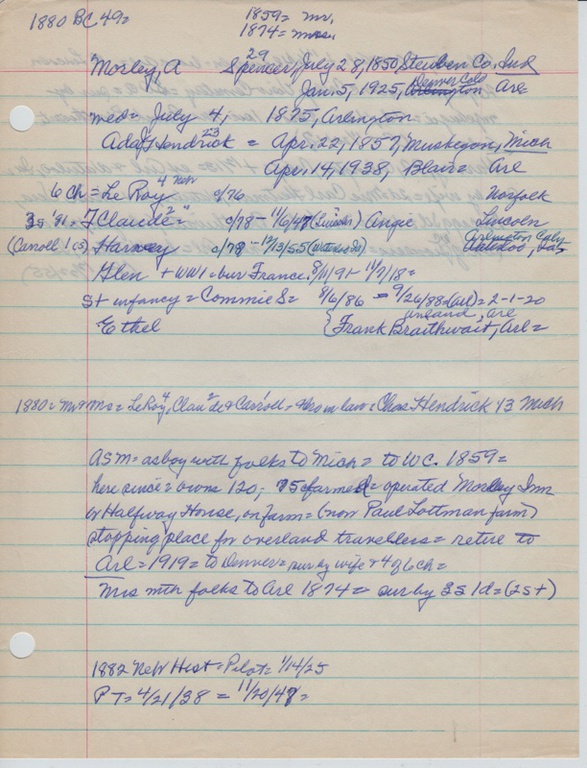 1880 BC 49=
1859= mr.
1874= mrs.
29
Morley, A Spencer, July 28, 1850 Steuben Co, Ind
Jan. 5, 1925, Denver Colo Arl
med= July 4, 1875, Arlington
23
Ada, Hendrick = Apr. 22, 1857, Muskegon, Mich
Apr. 14, 1938, Blair= Arl
6 ch = Le Roy 4 New c/76 Norfolk
3s '81. F Claude 2" c/78 - 11/6/47 (Lincoln) Angie Lincoln
(Carroll 1 cs) Harvey c/78 - 12/13/55 (Waterloo) Arlington Waterloo,
Glen + WW1 = bur France. 8/11/91 - 11/7/18=
St infancy = Commie S= 8/6/86 - 9/26/88 (Arl) = 2-1-20
Ethel {Frank Braithwait, Arl=
1880= Mr + Mrs = LeRoy 4, Claude 2 + Carroll - + bro in law = Chas Hendrick 43 Mich
ASM= as boy with folks to Mich= to WC. 1859=
here since = owns 120; 75 c farmed= operated Morley Inn
or Halfway House, on farm= (now Paul Lottman farm)
stopping place for overland travellers = retire to
Arl= 1919= to Denver= sur by wife + 4 of 6 ch=
Mrs M with folks to Arl 1874= sur by 3s 1d= (2s+)
1882 Neb Hist = Pilot= 1/14/25
PT= 4/21/38 = 11/20/47=